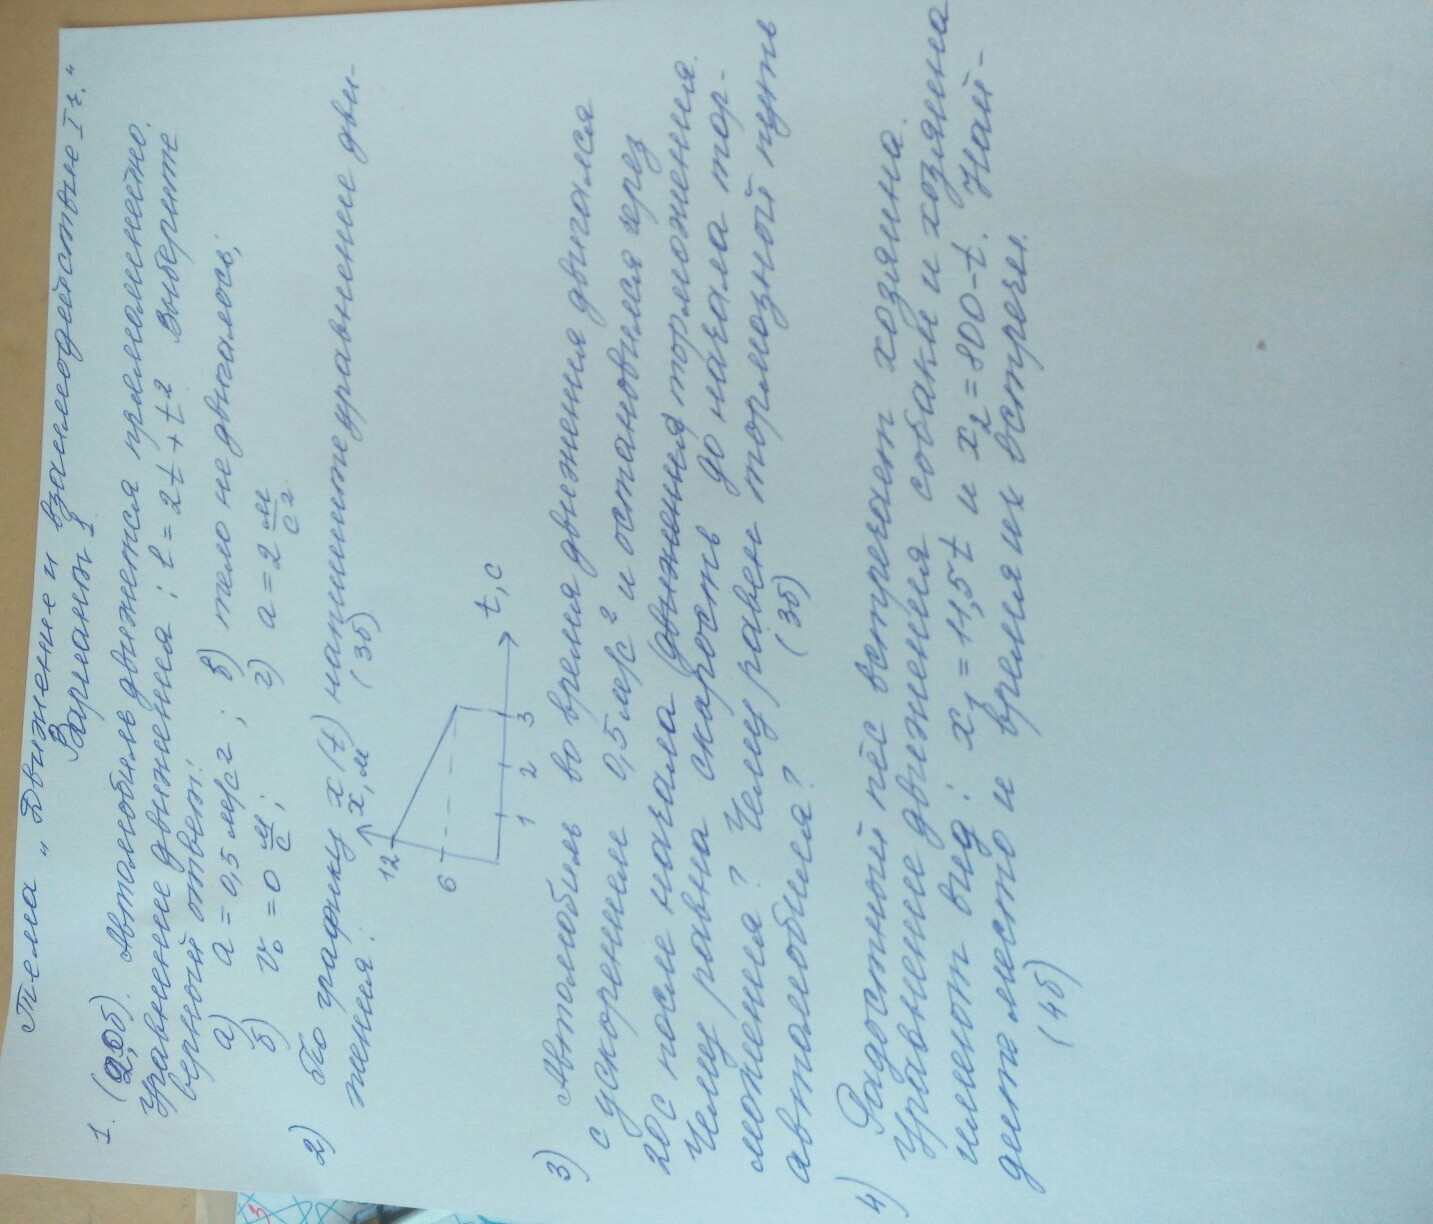 Тема „Движение и взаимодействие I ч.“
Вариант 1
1. (2,0б). Автомобиль движется прямолинейно.
Уравнение движения : l = 2t + t² Выберите
верный ответ:
а) a = 0,5 м/с² ; в) тело не двигалось;
б) v₀ = 0 м/с ; г) a = 2 м/с²
2) По графику x(t) напишите уравнение дви-
жения. (3б)
x, м
12
6
1 2 3 t, c
3) Автомобиль во время движения двигался
с ускорением 0,5 м/с² и остановился через
20с после начала движения торможения.
Чему равна скорость до начала тор-
можения? Чему равен тормозной путь
автомобиля? (3б)
4) Радостный пёс встречает хозяина.
Уравнение движения собаки и хозяина
имеют вид: x₁ = 11,5t и x₂ = 800-t. Най-
дите место и время их встречи.
(4б)